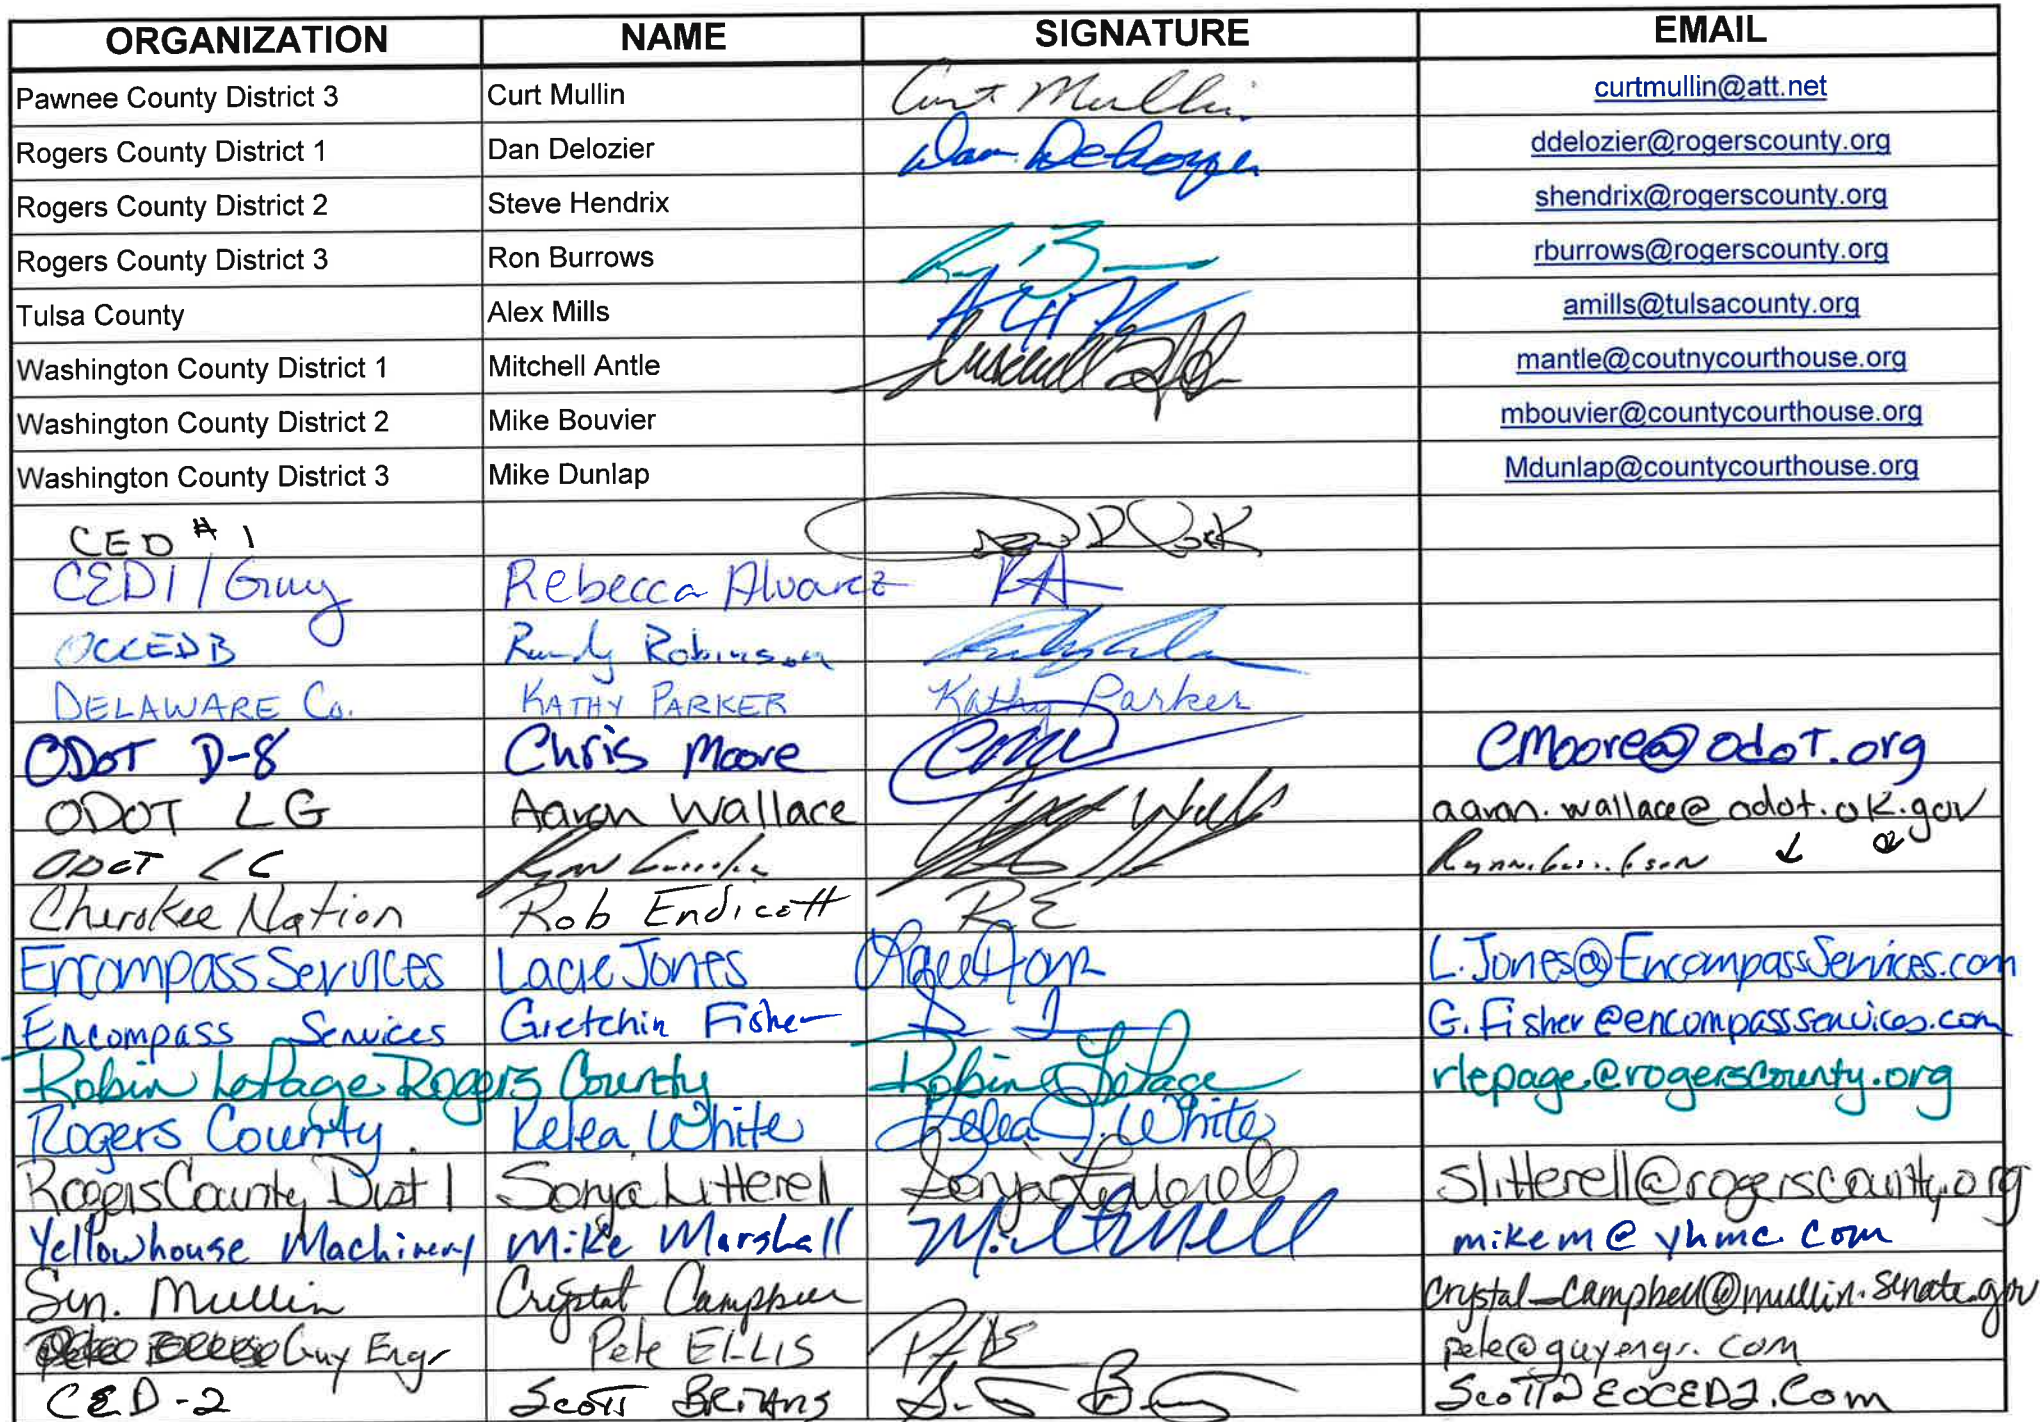 ORGANIZATION NAME SIGNATURE EMAIL
Pawnee County District 3 Curt Mullin Curt Mullin curtmullin@att.net
Rogers County District 1 Dan Delozier Dan Delozier ddelozier@rogerscounty.org
Rogers County District 2 Steve Hendrix shendrix@rogerscounty.org
Rogers County District 3 Ron Burrows rburrows@rogerscounty.org
Tulsa County Alex Mills amills@tulsacounty.org
Washington County District 1 Mitchell Antle mantle@coutnycourthouse.org
Washington County District 2 Mike Bouvier mbouvier@countycourthouse.org
Washington County District 3 Mike Dunlap Mdunlap@countycourthouse.org
CED # 1
CED1 / Guy Rebecca Alvarez RA
OCCEDB Randy Robinson
DELAWARE Co. KATHY PARKER Kathy Parker
ODOT D-8 Chris Moore CMoore@odot.org
ODOT LG Aaron Wallace aaron.wallace@odot.ok.gov
ODOT
Cherokee Nation Rob Endicott RE
Encompass Services Lacie Jones L.Jones@EncompassServices.com
Encompass Services Gretchin Fisher G.Fisher@encompassservices.com
Robin LePage Rogers County Robin LePage rlepage@rogerscounty.org
Rogers County Kelea White Kelea J. White
Rogers County Dist 1 Sonja Litterell Sonja Litterell slitterell@rogerscounty.org
Yellowhouse Machinery Mike Marshall mikem@yhmc.com
Sen. Mullin Crystal Campbell crystal_campbell@mullin.senate.gov
Guy Engr Pete ELLIS pete@guyengr.com
CED-2 Scott